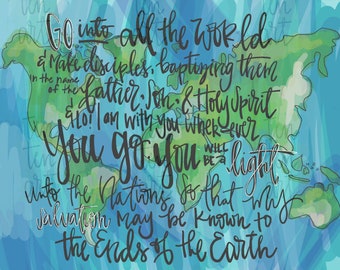 Go into all the World
& Make disciples, baptizing them
in the name of the Father, Son, & Holy Spirit
& Lo! I am with you where-ever
You go. You will be a light
unto the Nations, so that way
salvation may be known to
the Ends of the Earth